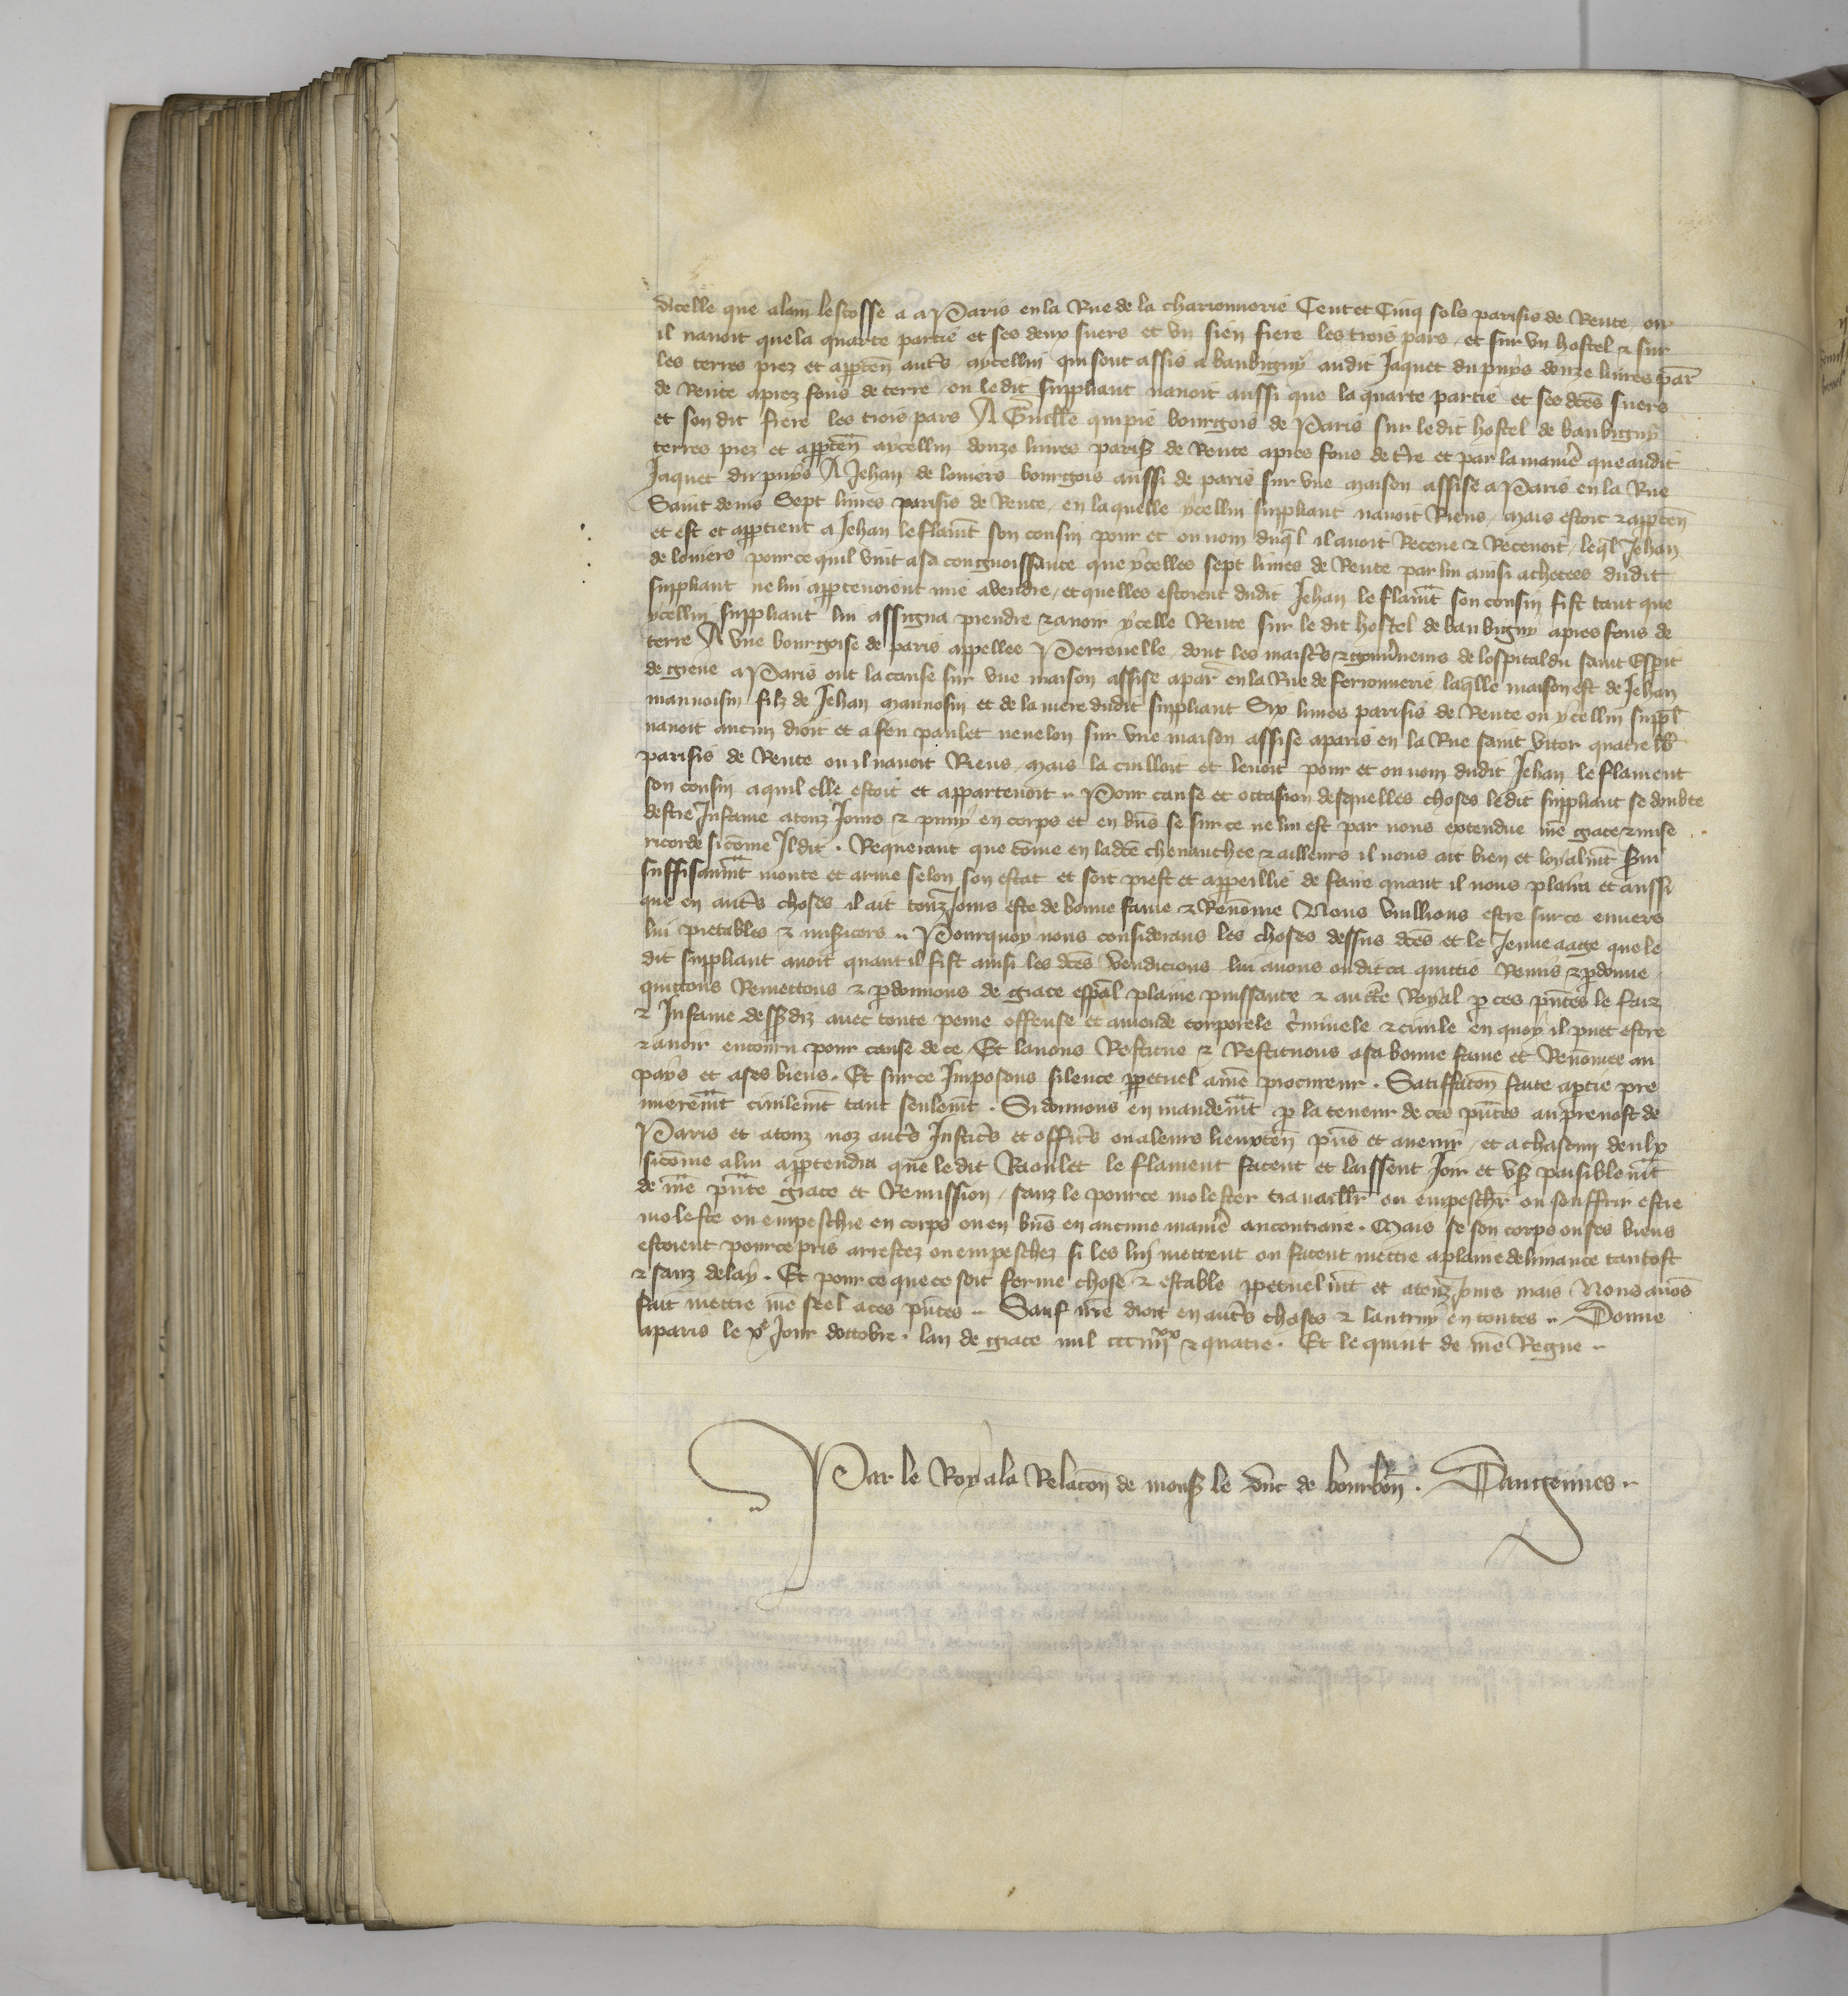 dicelle que alain lescosse a a Paris en la Rue de la charronnerie Cent et Cinq solz parisis de Rente / ou
il navoit que la quarte partie et ses deux suers et un sien frere les trois pars / et sur un hostel & sur
les terres prez et apptēn aut̄s aycellui qui sont assis a baubigny audit Jaquet du puys douze livres par̄
de Rente aprez fons de terre / ou le dit suppliant navoit aussi que la quarte partie et ses dc̄es suers
et son dit frere les trois pars A Guill̄e quipie bourgois de Paris sur le dit hostel de baubigny
terres prez et apptēn aycellui douze livres paris̄ de Rente apres fons de t̄re et par la manier̄ que audit
Jaquet du puys A Jehan de louviers bourgois aussi de paris sur une maison assise a Paris en la Rue
Saint denis Sept livres parisis de Rente / en laquelle ycellui suppliant navoit Riens / mais estoit & apptēn
et est et apptient a Jehan le flam̄t son cousin pour et ou nom duq̄l il avoit Receue & Recevoit / leq̄l Jehan
de louviers pour ce quil vint a sa congnoissance que ycelles sept livres de Rente par lui ainsi achetees dudit
suppliant ne lui apptenoient mie a vendre / et quelles estoient dudit Jehan le flam̄t son cousin fist tant que
ycellui suppliant lui assigna prendre & avoir ycelle Rente sur le dit hostel de baubigny apres fons de
terre A une bourgoise de paris appellee Perrenelle / dont les maist̄s & gouv̄neurs de lospital du saint Esp̄it
de greve a Paris ont la cause sur une maison assise a par̄ en la Rue de ferronnerie laq̄lle maison est de Jehan
mauvoisin filz de Jehan mauvosin et de la mere dudit suppliant Six livres parisis de Rente ou ycellui supp̄l
navoit aucun droit et a feu paulet nevelon sur une maison assise a paris en la Rue saint vitor quatre lb̄
parisis de Rente ou il navoit Riens / mais la cuilloit et levoit pour et ou nom dudit Jehan le flament
son cousin a quil elle estoit et appartenoit .. Pour cause et occasion desquelles choses le dit suppliant se doubte
destre Infame a touz Jours & puny en corps et en bn̄s se sur ce ne lui est par nous extendue nr̄e grace & mise
ricorde si cōme Il dit . Requerant que cōme en ladc̄e chevauchee & ailleurs il nous ait bien et loyalm̄t s̄vi
suffisaum̄t monte et arme selon son estat et soit prest et appeillie de faire quant il nous plaira et aussi
que en aut̄s choses il ait touz Jours este de bonne fame & Renōmee Nous vuillions estre sur ce envers
lui pietables & mis̄icors .. Pourquoy nous considerans les choses dessus dc̄es et le Jeune aage que le
dit suppliant avoit quant il fist ainsi les dc̄es vendicions lui avons ou dit ca quictie Remis & p̄donne
quictons Remettons & p̄donnons de grace esp̄al plaine puissance & auct̄e Royal p̄ ces pn̄tes le fait
& Infame dess̄diz avec toute peine offense et amende corporele c̄iminele & civile en quoy il puet estre
& avoir encouru pour cause de ce / Et lavons Restitue & Restituons a sa bonne fame et Renōmee au
pays et a ses biens . Et sur ce Imposons silence p̄petuel a nr̄e procureur . Satiffacōn faite a p̄tie pre
mierem̄t civilem̄t tant seulem̄t . Si donnons en mandem̄t p̄ la teneur de ces pn̄tes au prevost de
Paris et a touz noz aut̄s Justic̄s et offic̄s ou a leurs lieuxtēn pn̄s et avenir / et a chascun deulx
si cōme a lui apptendra que le dit Raoulet le flament facent et laissent Joir et us̄ paisiblem̄t
de nr̄e pn̄te grace et Remission / sanz le pour ce molester travaill̄r ou empesch̄r ou souffrir estre
moleste ou empeschie en corps ou en bn̄s en aucune manier̄ au contraire . Mais se son corps ou ses biens
estoient pour ce pris arrestez ou empeschez si les luy mettent ou facent mettre a plaine delivrance tantost
& sanz delay . Et pour ce que ce soit ferme chose & estable p̄petuelm̄t et a touz Jours mais Nous avōs
fait mettre nr̄e seel a ces pn̄tes .. Sauf nr̄e droit en aut̄s choses & lautruy en toutes .. Donne
a paris le xe Jour doctobre . lan de grace mil ccc iiiixx & quatre . Et le quint de nr̄e Regne ..
Par le Roy a la Relacōn de mons̄ le duc de bourbōn . Dangennes ..